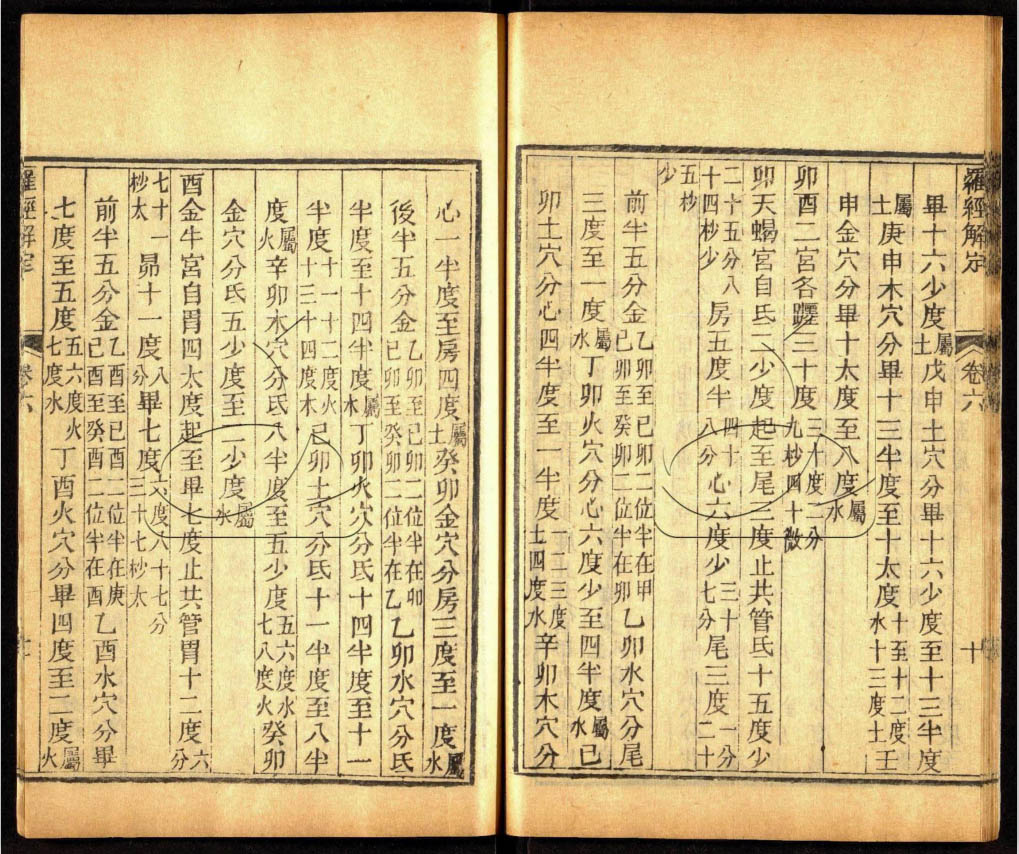 羅經解定 卷六 十
畢十六少度屬土戊申土穴分畢十六少度至十三半度
屬土庚申木穴分畢十三半度至十太度十至十二度水十三度土壬
申金穴分畢十太度至八度屬水
卯酉二宮各躔三十度三十度二分九秒四十微
卯天蝎宮自氐二少度起至尾三度止共管氐十五度少
二十五分八十四秒少房五度半四十八分心六度少三十七分尾三度一分二十
五秒少
前半五分金乙卯至己卯二位半在甲己卯至癸卯二位半在卯乙卯水穴分尾
三度至一度屬水丁卯火穴分心六度少至四半度屬水己
卯土穴分心四半度至一半度一二三度土四度水辛卯木穴分
心一半度至房四度屬土癸卯金穴分房三度至一度屬水
後半五分金乙卯至己卯二位半在卯己卯至癸卯二位半在乙乙卯水穴分氐
半度至十四半度屬木丁卯火穴分氐十四半度至十一
半度十一十二度火十三十四度木己卯土穴分氐十一半度至八半
度屬火辛卯木穴分氐八半度至五少度五六度水七八度火癸卯
金穴分氐五少度至二少度屬水
酉金牛宮自胃四太度起至畢七度止共管胃十二度六分
七十一秒太昴十一度八分畢七度六度八十七分三十七秒太
前半五分金乙酉至己酉二位半在庚己酉至癸酉二位半在酉乙酉水穴分畢
七度至五度五六度火七度水丁酉火穴分畢四度至二度屬火
羅經解定 卷六